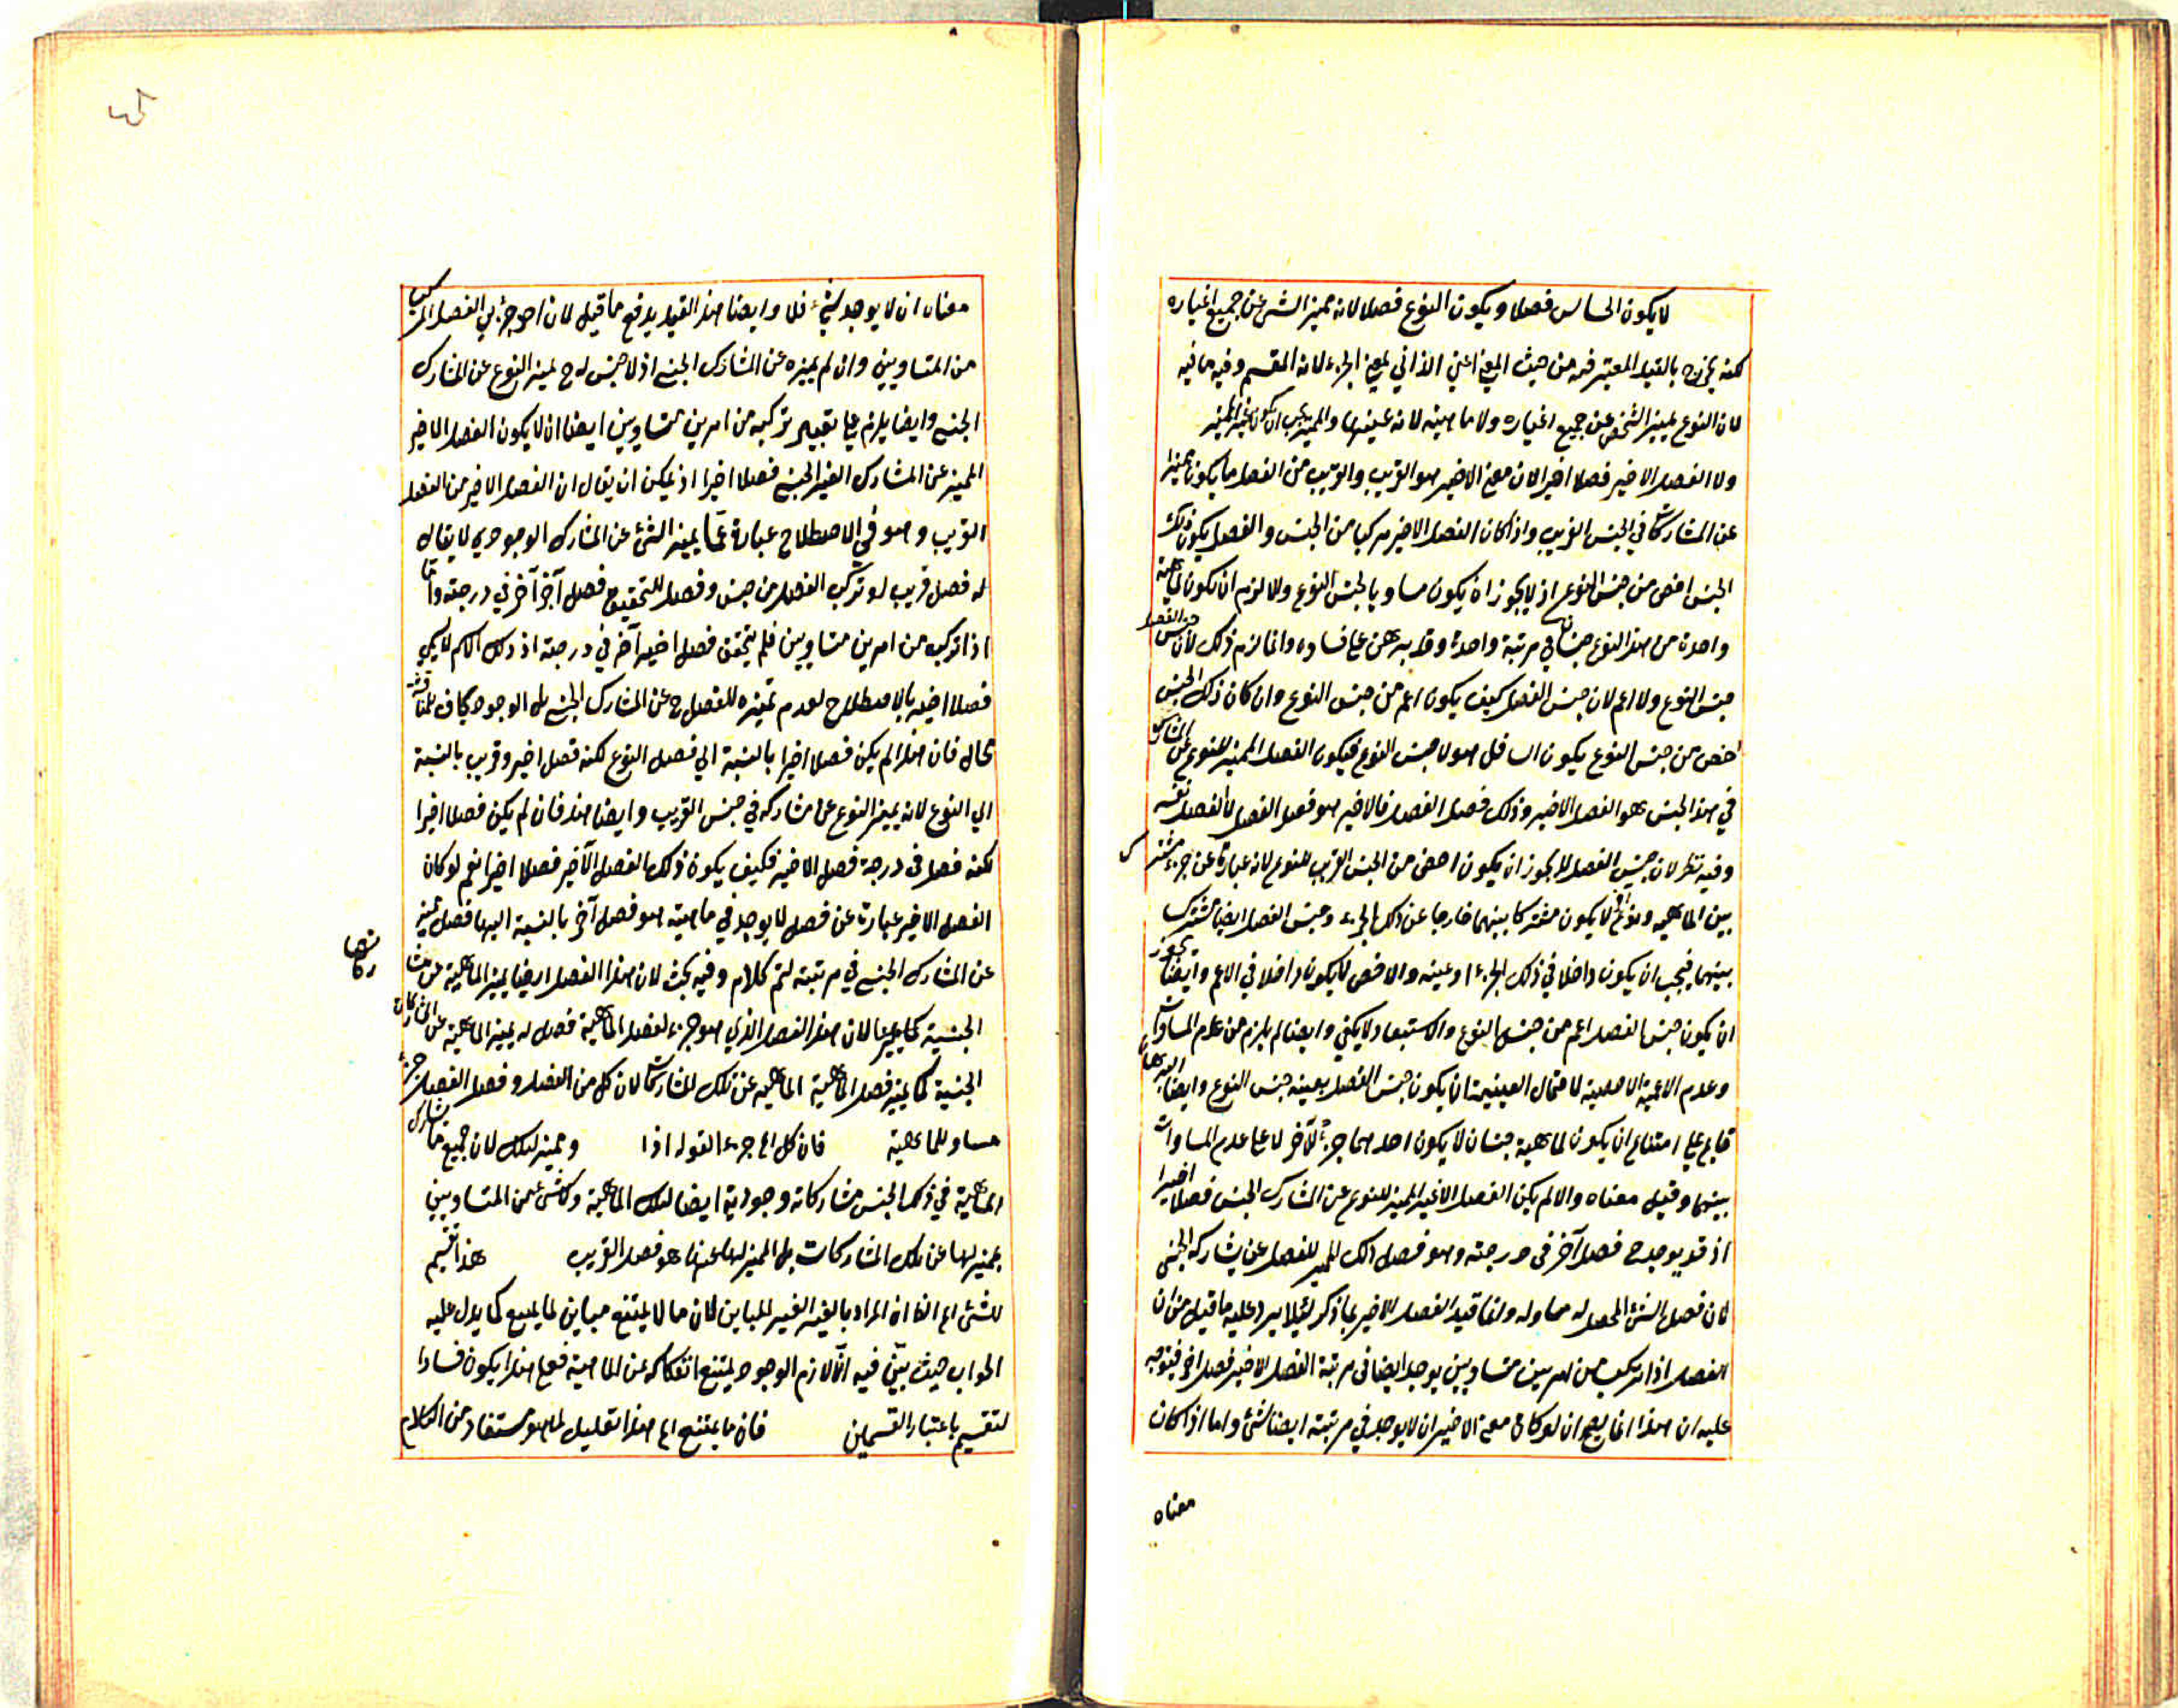 لا يكون الحساس فصلا ويكون النوع فصلا لانه مميز الشئ عن جميع اغياره
لكنه يخرج بالقيد المعتبر فيه من حيث المعنى اعني الذاتي بمعنى الجزء لانه المقسم وفيه ما فيه
لان النوع يميز الشخص عن جميع اغياره ولا ماهيته لانه عينها والمميز يجب ان يكون غير المميز
ولا الفصل الاخير فصلا اخيرا لان معنى الاخير هو القريب والقريب من الفصل ما يكون مميزا
عن المشاركات في الجنس القريب واذا كان الفصل الاخير مركبا من الجنس والفصل يكون ذلك
الجنس اخص من جنس النوع اذ لا يجوز ان يكون مساويا لجنس النوع والا لزم ان يكون لماهية
واحدة من هذا النوع جنسان في مرتبة واحدة وقد برهن على فساده وانما لزم ذلك لان جنس الفصل
جنس النوع ولا اعم لان جنس الفصل كيف يكون اعم من جنس النوع وان كان ذلك الجنس
اخص من جنس النوع يكون السافل هو لا جنس النوع فيكون الفصل المميز للنوع عن المشارك
في هذا الجنس هو الفصل الاخير وذلك فصل الفصل فالاخير هو فصل الفصل لا الفصل نفسه
وفيه نظر لان جنس الفصل لا يجوز ان يكون اخص من الجنس القريب للنوع لانه عبارة عن جزء مشترك
بين الماهية ونوع آخر لا يكون مشتركا بينهما خارجا عن ذلك الجزء وجنس الفصل ايضا مشترك
بينهما فيجب ان يكون داخلا في ذلك الجزء او عينه والاخص لا يكون داخلا في الاعم وايضا يجوز
ان يكون جنس الفصل اعم من جنس النوع والاستبعاد لا يكفي وايضا لم يلزم من عدم المساواة
وعدم الاعمية الاخصية لاحتمال العينية ان يكون جنس الفصل بعينه جنس النوع وايضا البرهان
قايم على امتناع ان يكون لماهية جنسان لا يكون احدهما جزءا لآخر لا على عدم المساواة
بينهما وقيل معناه والا لم يكن الفصل الاخير المميز للنوع عن المشارك الجنس فصلا اخيرا
اذ قد يوجد ح فصل آخر في درجته وهو فصل ذلك المميز للفصل عن يشاركه الجنس
لان فصل الشئ المحصل له مساو له وانما قيد الفصل الاخير بما ذكر لئلا يرد عليه ما قيل من ان
الفصل اذا تركب من امرين متساويين يوجد ايضا في مرتبة الفصل الاخير فصل آخر فيتوجه
عليه ان هذا انما يصح ان لو كان معنى الاخير ان لا يوجد في مرتبته ايضا شئ واما اذا كان
معناه
معناه ان لا يوجد شئ فلا وايضا هذا القيد يدفع ما قيل لان احد جزئي الفصل المركب
من المتساويين وان لم يميزه عن المشارك الجنسي اذ لا جنس له ح يميز النوع عن المشارك
الجنسي وايضا يلزم على تقدير تركبه من امرين متساويين ايضا ان لا يكون الفصل الاخير
المميز عن المشارك الغير الجنسي فصلا اخيرا اذ يمكن ان يقال ان الفصل الاخير من الفصل
القريب وهو في الاصطلاح عبارة عما يميز الشئ عن المشارك الوجودي لا يقال
له فصل قريب لو تركب الفصل من جنس وفصل لتحقيق فصل آخر آخر في درجته واما
اذا تركب من امرين متساويين فلم يتحقق فصل اخير آخر في درجته اذ ذلك الامر لا يكون
فصلا اخيرا بالاصطلاح لعدم تميزه للفصل ح عن المشارك الجنسي بل الوجودي كاف
قال فان هذا لم يكن فصلا اخيرا بالنسبة الى فصل النوع لكنه فصل اخير وقريب بالنسبة
الى النوع لانه يميز النوع عن مشاركه في جنس القريب وايضا هذا فان لم يكن فصلا اخيرا
لكنه فصل في درجة فصل الاخير فكيف يكون ذلك الفصل الآخير فصلا اخيرا نعم لو كان
الفصل الاخير عبارة عن فصل لا يوجد في ماهيته هو فصل آخر بالنسبة اليها فصل يميز
عن المشارك الجنسي في مرتبته لتم كلام وفيه بحث لان هذا الفصل ايضا يميز الماهية عن مشاركاتها
الجنسية كما لان هذا الفصل الذي هو جزء لفصل الماهية فصل له يميز الماهية عن المشاركات
الجنسية كما يميز فصل الماهية الماهية عن تلك المشاركات لان كل من الفصل وفصل الفصل جزء
مساو للماهية فان كل الى جزء القوله اذا ومميز لتلك لان جميع مشارك
الماهية في ذلك الجنس مشاركاته وجودية ايضا لتلك الماهية وكل شئ عن المتساويين
يميز لها عن تلك المشاركات بل المميز لها عنها هو فصل القريب هذا تقسيم
للشئ الى ان المراد بالغير الغير المباين لان ما لا يمتنع مباين لما يمتنع كما يدل عليه
الجواب حيث بين فيه ان لازم الوجود يمتنع انفكاكه عن الماهية فعلى هذا يكون فسادا
لتقسيم باعتبار القسمين فان ما يمتنع الى هذا تعليل لما هو مستفاد من الكلام